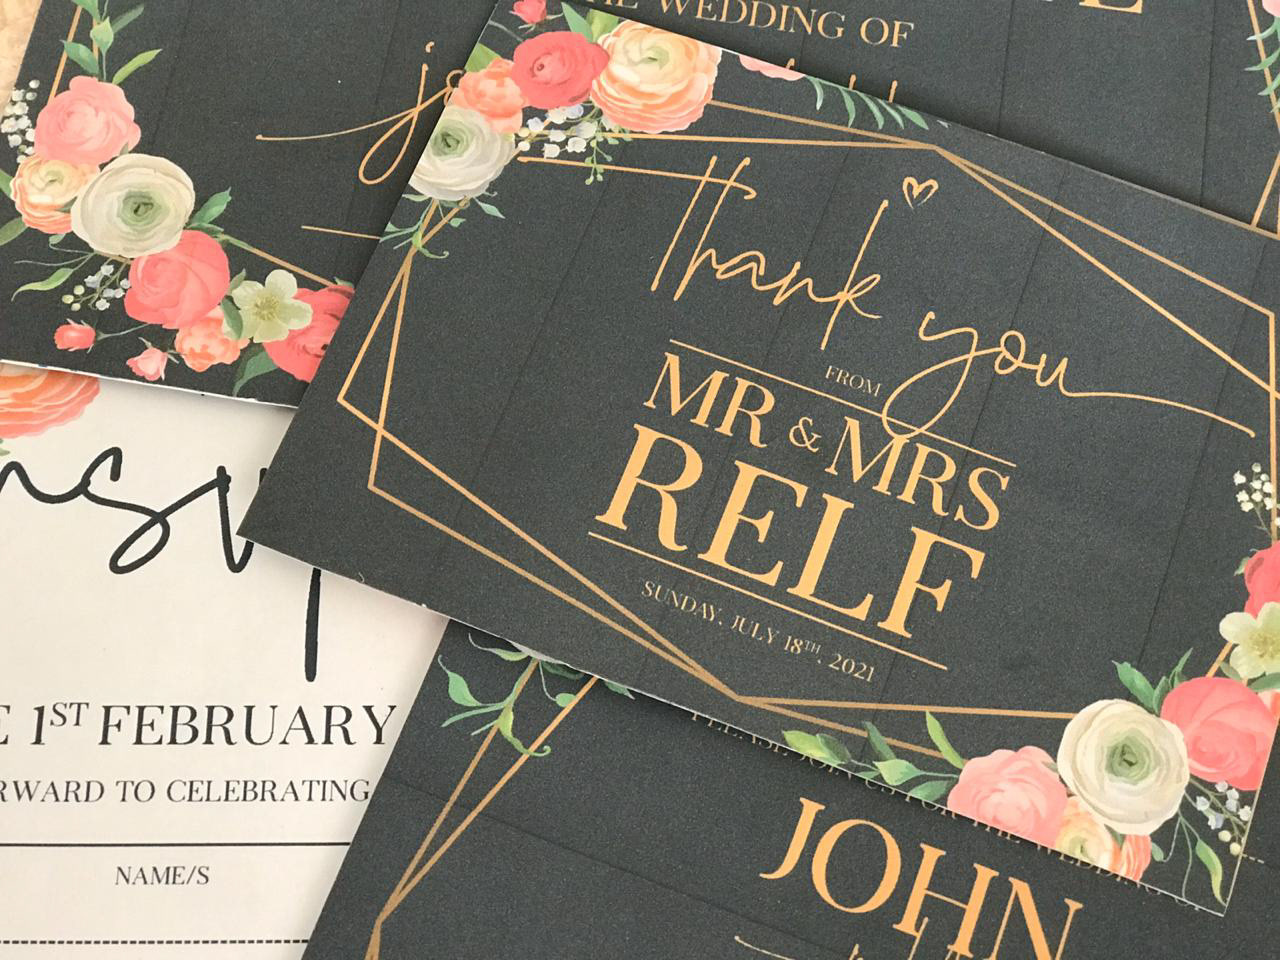 THE WEDDING OF
Thank you
FROM
MR & MRS
RELF
SUNDAY, JULY 18TH, 2021
1ST FEBRUARY
CELEBRATING
TO
NAME/S
PLEASE JOIN US FOR THE WEDDING OF
JOHN